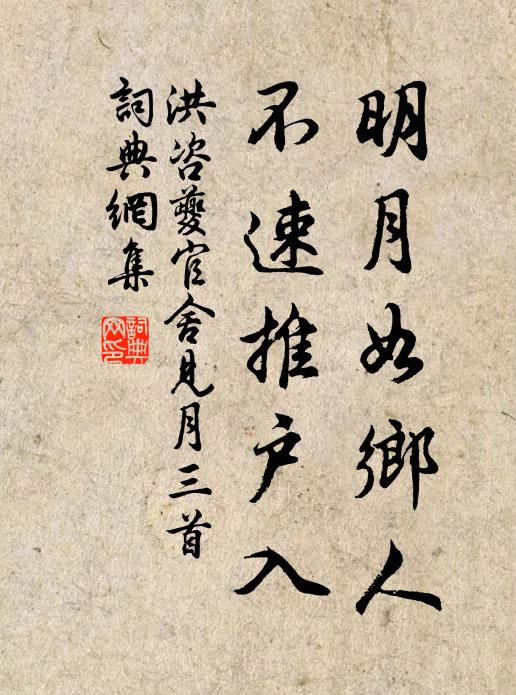 明月如鄉人
不速推户入
洪咨夔官舍見月三首
詞典網集
詞典
网印